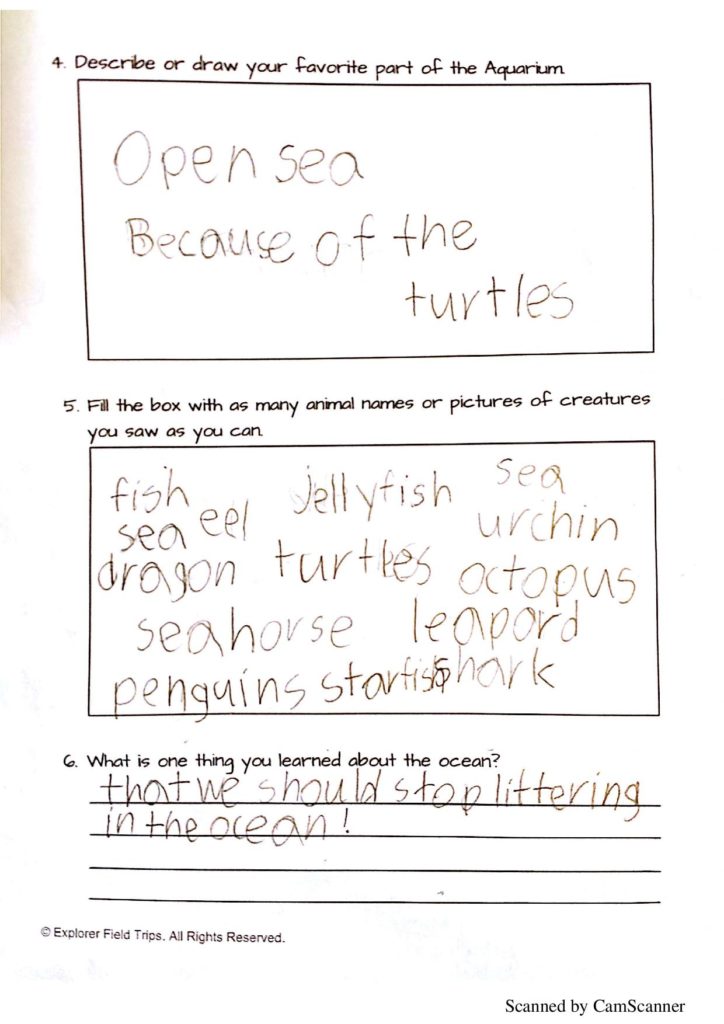 4. Describe or draw your favorite part of the Aquarium.
Open sea
Because of the
turtles
5. Fill the box with as many animal names or pictures of creatures
you saw as you can.
fish jellyfish sea
sea eel urchin
dragon turtles octopus
seahorse leapord
penguins starfish shark
6. What is one thing you learned about the ocean?
that we should stop littering
in the ocean!
© Explorer Field Trips. All Rights Reserved.
Scanned by CamScanner